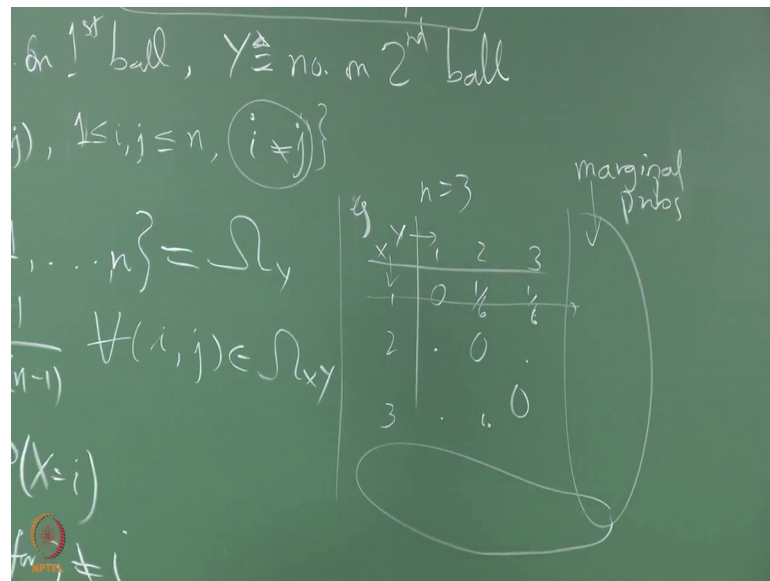 on 1st ball, Y ≜ no. on 2nd ball
j), 1≤i,j≤n, i≠j}
, ..., n} = Ω_Y
1/(n-1) ∀(i,j)∈Ω_XY
P(X=i)
for j≠i
eg n=3
marginal
probs
X Y→ 1 2 3
↓
1 0 1/6 1/6
2 . 0 .
3 . . 0
NPTEL